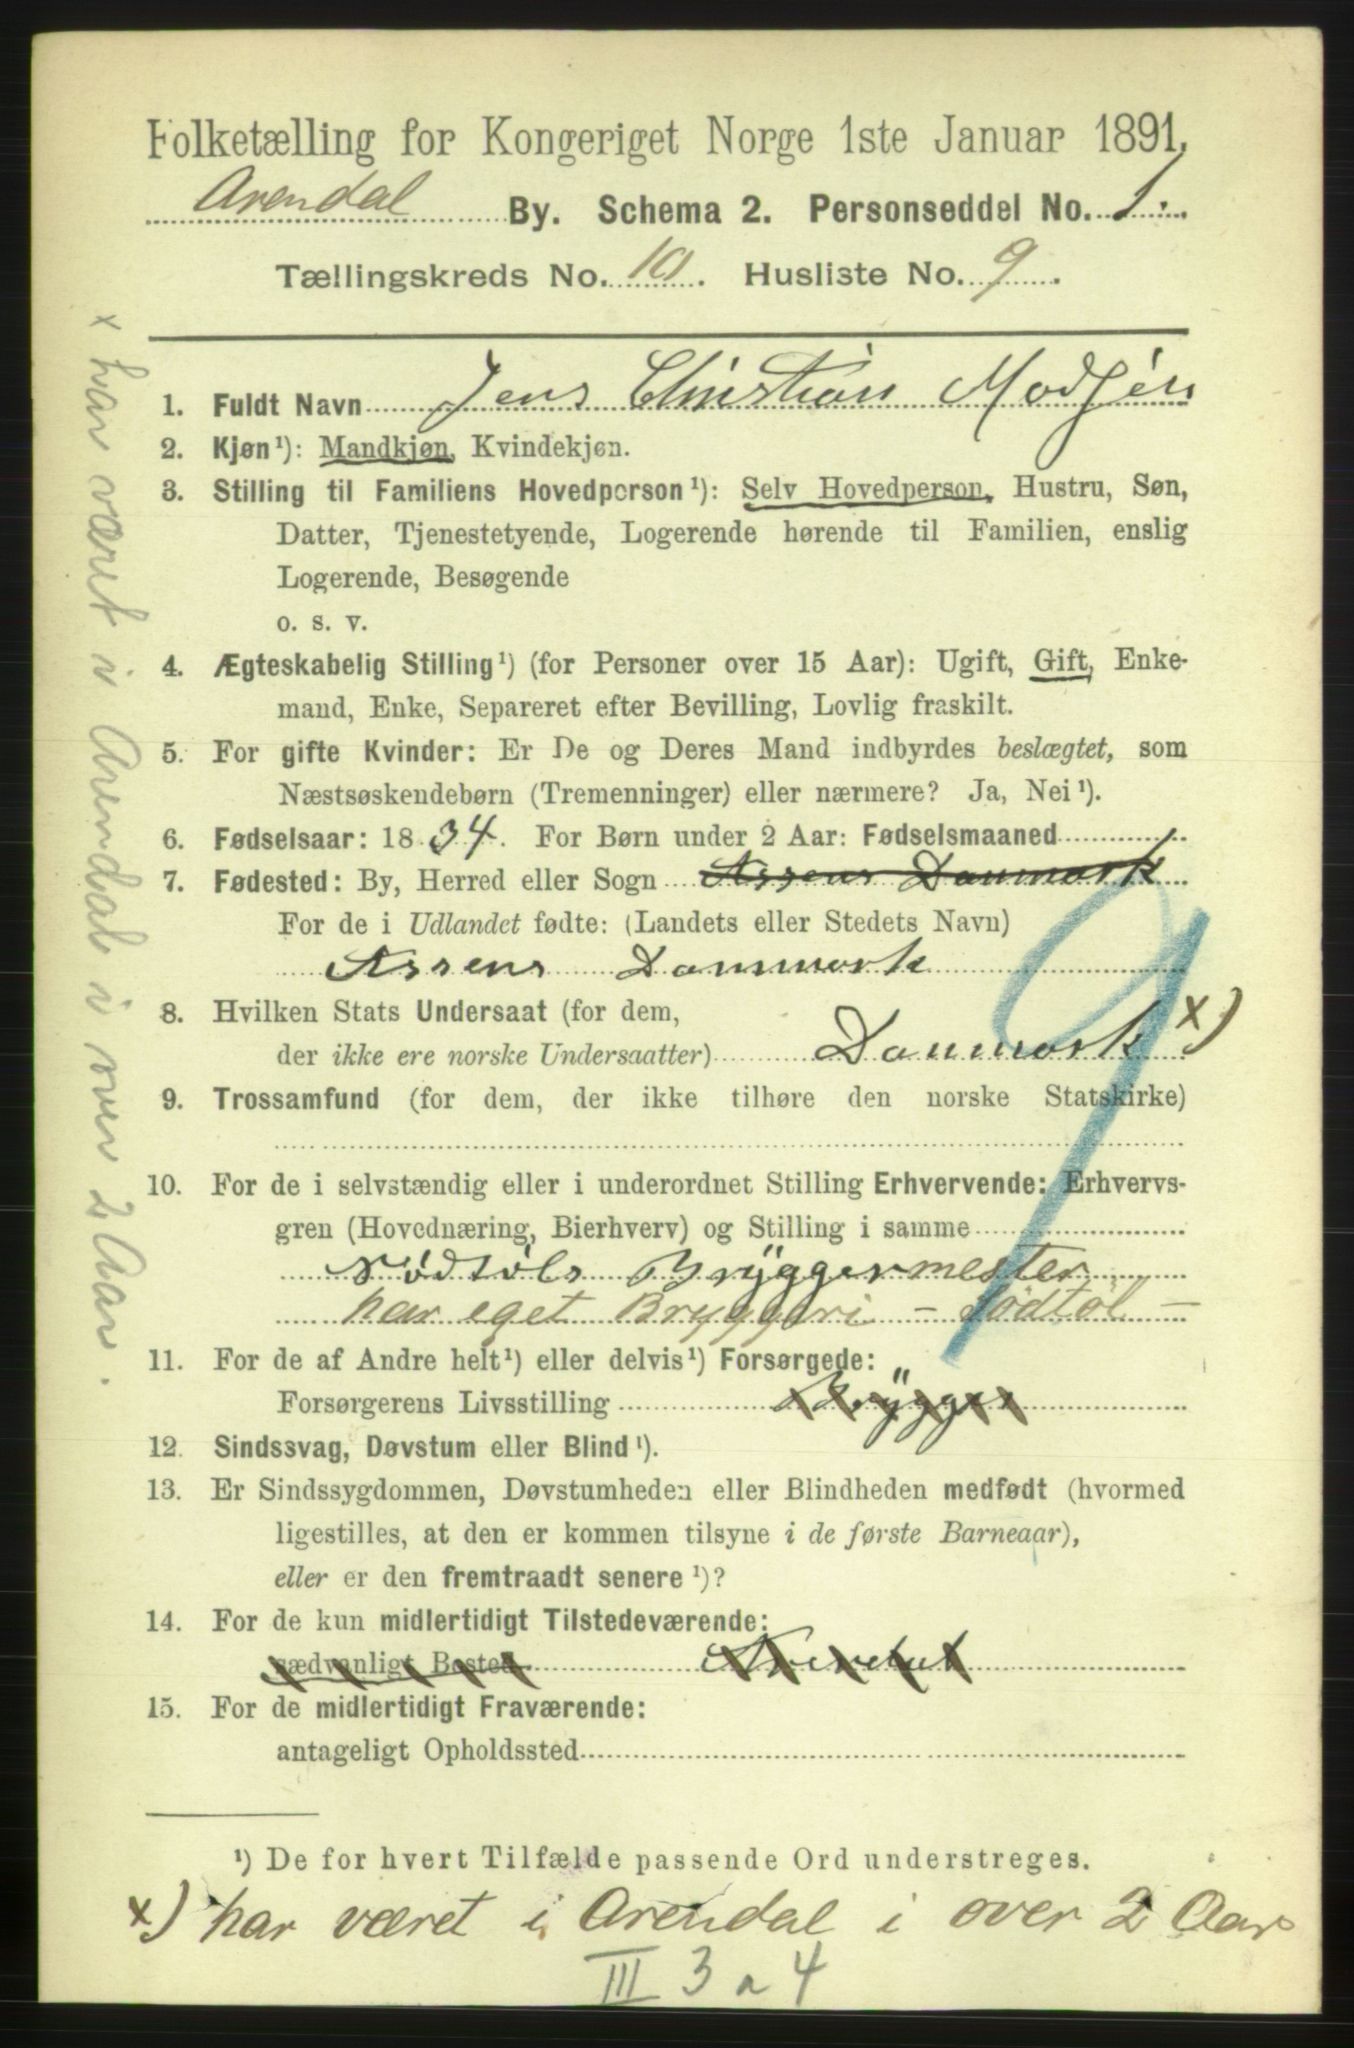 Folketælling for Kongeriget Norge 1ste Januar 1891.
Arendal By. Schema 2. Personseddel No. 1.
Tællingskreds No. 10. Husliste No. 9.
1. Fuldt Navn Jens Christian
2. Kjøn¹): Mandkjøn, Kvindekjøn.
3. Stilling til Familiens Hovedperson¹): Selv Hovedperson, Hustru, Søn,
Datter, Tjenestetyende, Logerende hørende til Familien, enslig
Logerende, Besøgende
o. s. v.
4. Ægteskabelig Stilling¹) (for Personer over 15 Aar): Ugift, Gift, Enke-
mand, Enke, Separeret efter Bevilling, Lovlig fraskilt.
5. For gifte Kvinder: Er De og Deres Mand indbyrdes beslægtet, som
Næstsøskendebørn (Tremenninger) eller nærmere? Ja, Nei¹).
6. Fødselsaar: 1834. For Børn under 2 Aar: Fødselsmaaned
7. Fødested: By, Herred eller Sogn Assens Danmark
For de i Udlandet fødte: (Landets eller Stedets Navn)
Assens Danmark
8. Hvilken Stats Undersaat (for dem,
der ikke ere norske Undersaatter) Danmark x)
9. Trossamfund (for dem, der ikke tilhøre den norske Statskirke)
10. For de i selvstændig eller i underordnet Stilling Erhvervende: Erhvervs-
gren (Hovednæring, Bierhverv) og Stilling i samme
Sødtøls Bryggermester
har eget Bryggeri – Sødtøl –
11. For de af Andre helt¹) eller delvis¹) Forsørgede:
Forsørgerens Livsstilling Brygger
12. Sindssvag, Døvstum eller Blind¹).
13. Er Sindssygdommen, Døvstumheden eller Blindheden medfødt (hvormed
ligestilles, at den er kommen tilsyne i de første Barneaar),
eller er den fremtraadt senere¹)?
14. For de kun midlertidigt Tilstedeværende:
sædvanligt Bosted Arendal
15. For de midlertidigt Fraværende:
antageligt Opholdssted
¹) De for hvert Tilfælde passende Ord understreges.
x) har været i Arendal i over 2 Aar
III 3 a 4
x har været i Arendal i over 2 Aar.
9